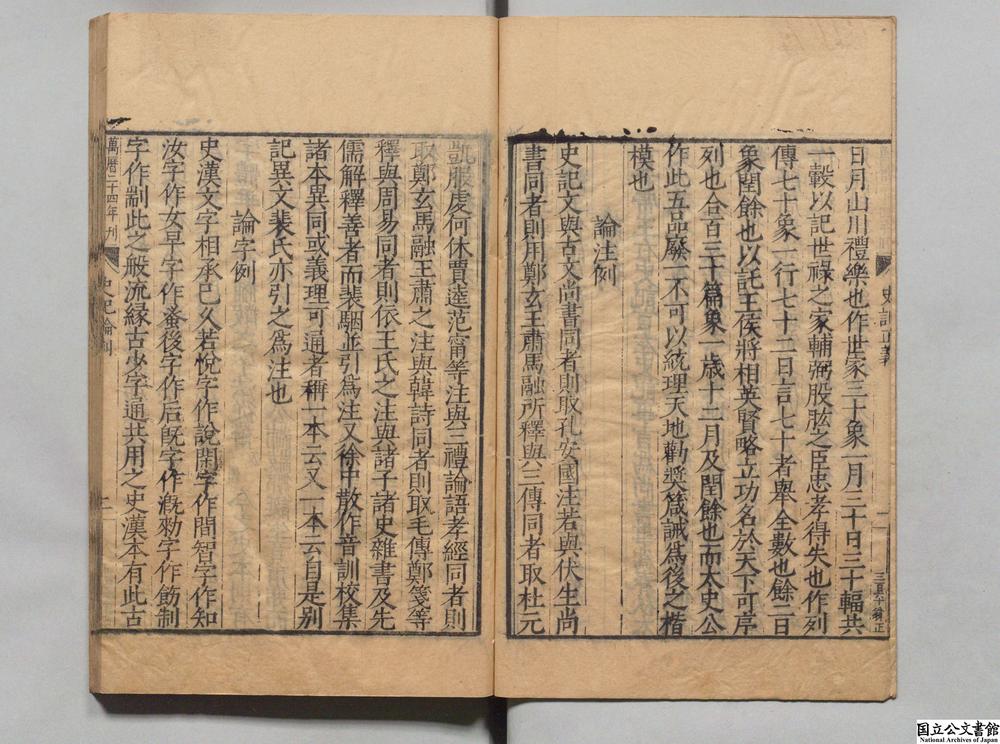 日月山川禮樂也作世家三十象一月三十日三十輻共
一轂以記世祿之家輔弼股肱之臣忠孝得失也作列
傳七十象一行七十二日言七十者舉全數也餘二日
象閏餘也以託王侯將相英賢略立功名於天下可序
列也合百三十篇象一歳十二月及閏餘也而太史公
作此五品廢一不可以統理天地勸奬箴誡爲後之楷
模也
論注例
史記文與古文尚書同者則取孔安國注若與伏生尚
書同者則用鄭玄王肅馬融所釋與三傳同者取杜元
凱服虔何休賈逵范甯等注與三禮論語孝經同者則
取鄭玄馬融王肅之注與韓詩同者則取毛傳鄭箋等
釋與周易同者則依王氏之注與諸子諸史雜書及先
儒解釋善者而裴駰並引爲注又徐中散作音訓校集
諸本異同或義理可通者稱一本云又一本云自是别
記異文裴氏亦引之爲注也
論字例
史漢文字相承已久若悅字作說閑字作間智字作知
汝字作女早字作蚤後字作后旣字作漑勑字作飭制
字作剬此之般流緣古少字通共用之史漢本有此古
萬暦二十四年刊
史記論例
史記正義